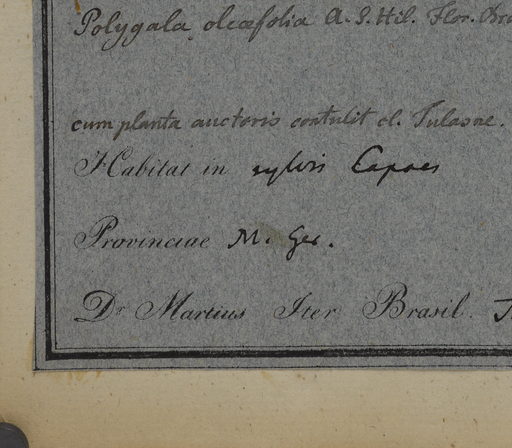 Polygala oleæfolia A. S. Hil. Flor. Bra
cum planta auctoris contulit cl. Tulasne.
Habitat in sylvis Capoes
Provinciae M. Ger.
Dr Martius Iter Brasil.